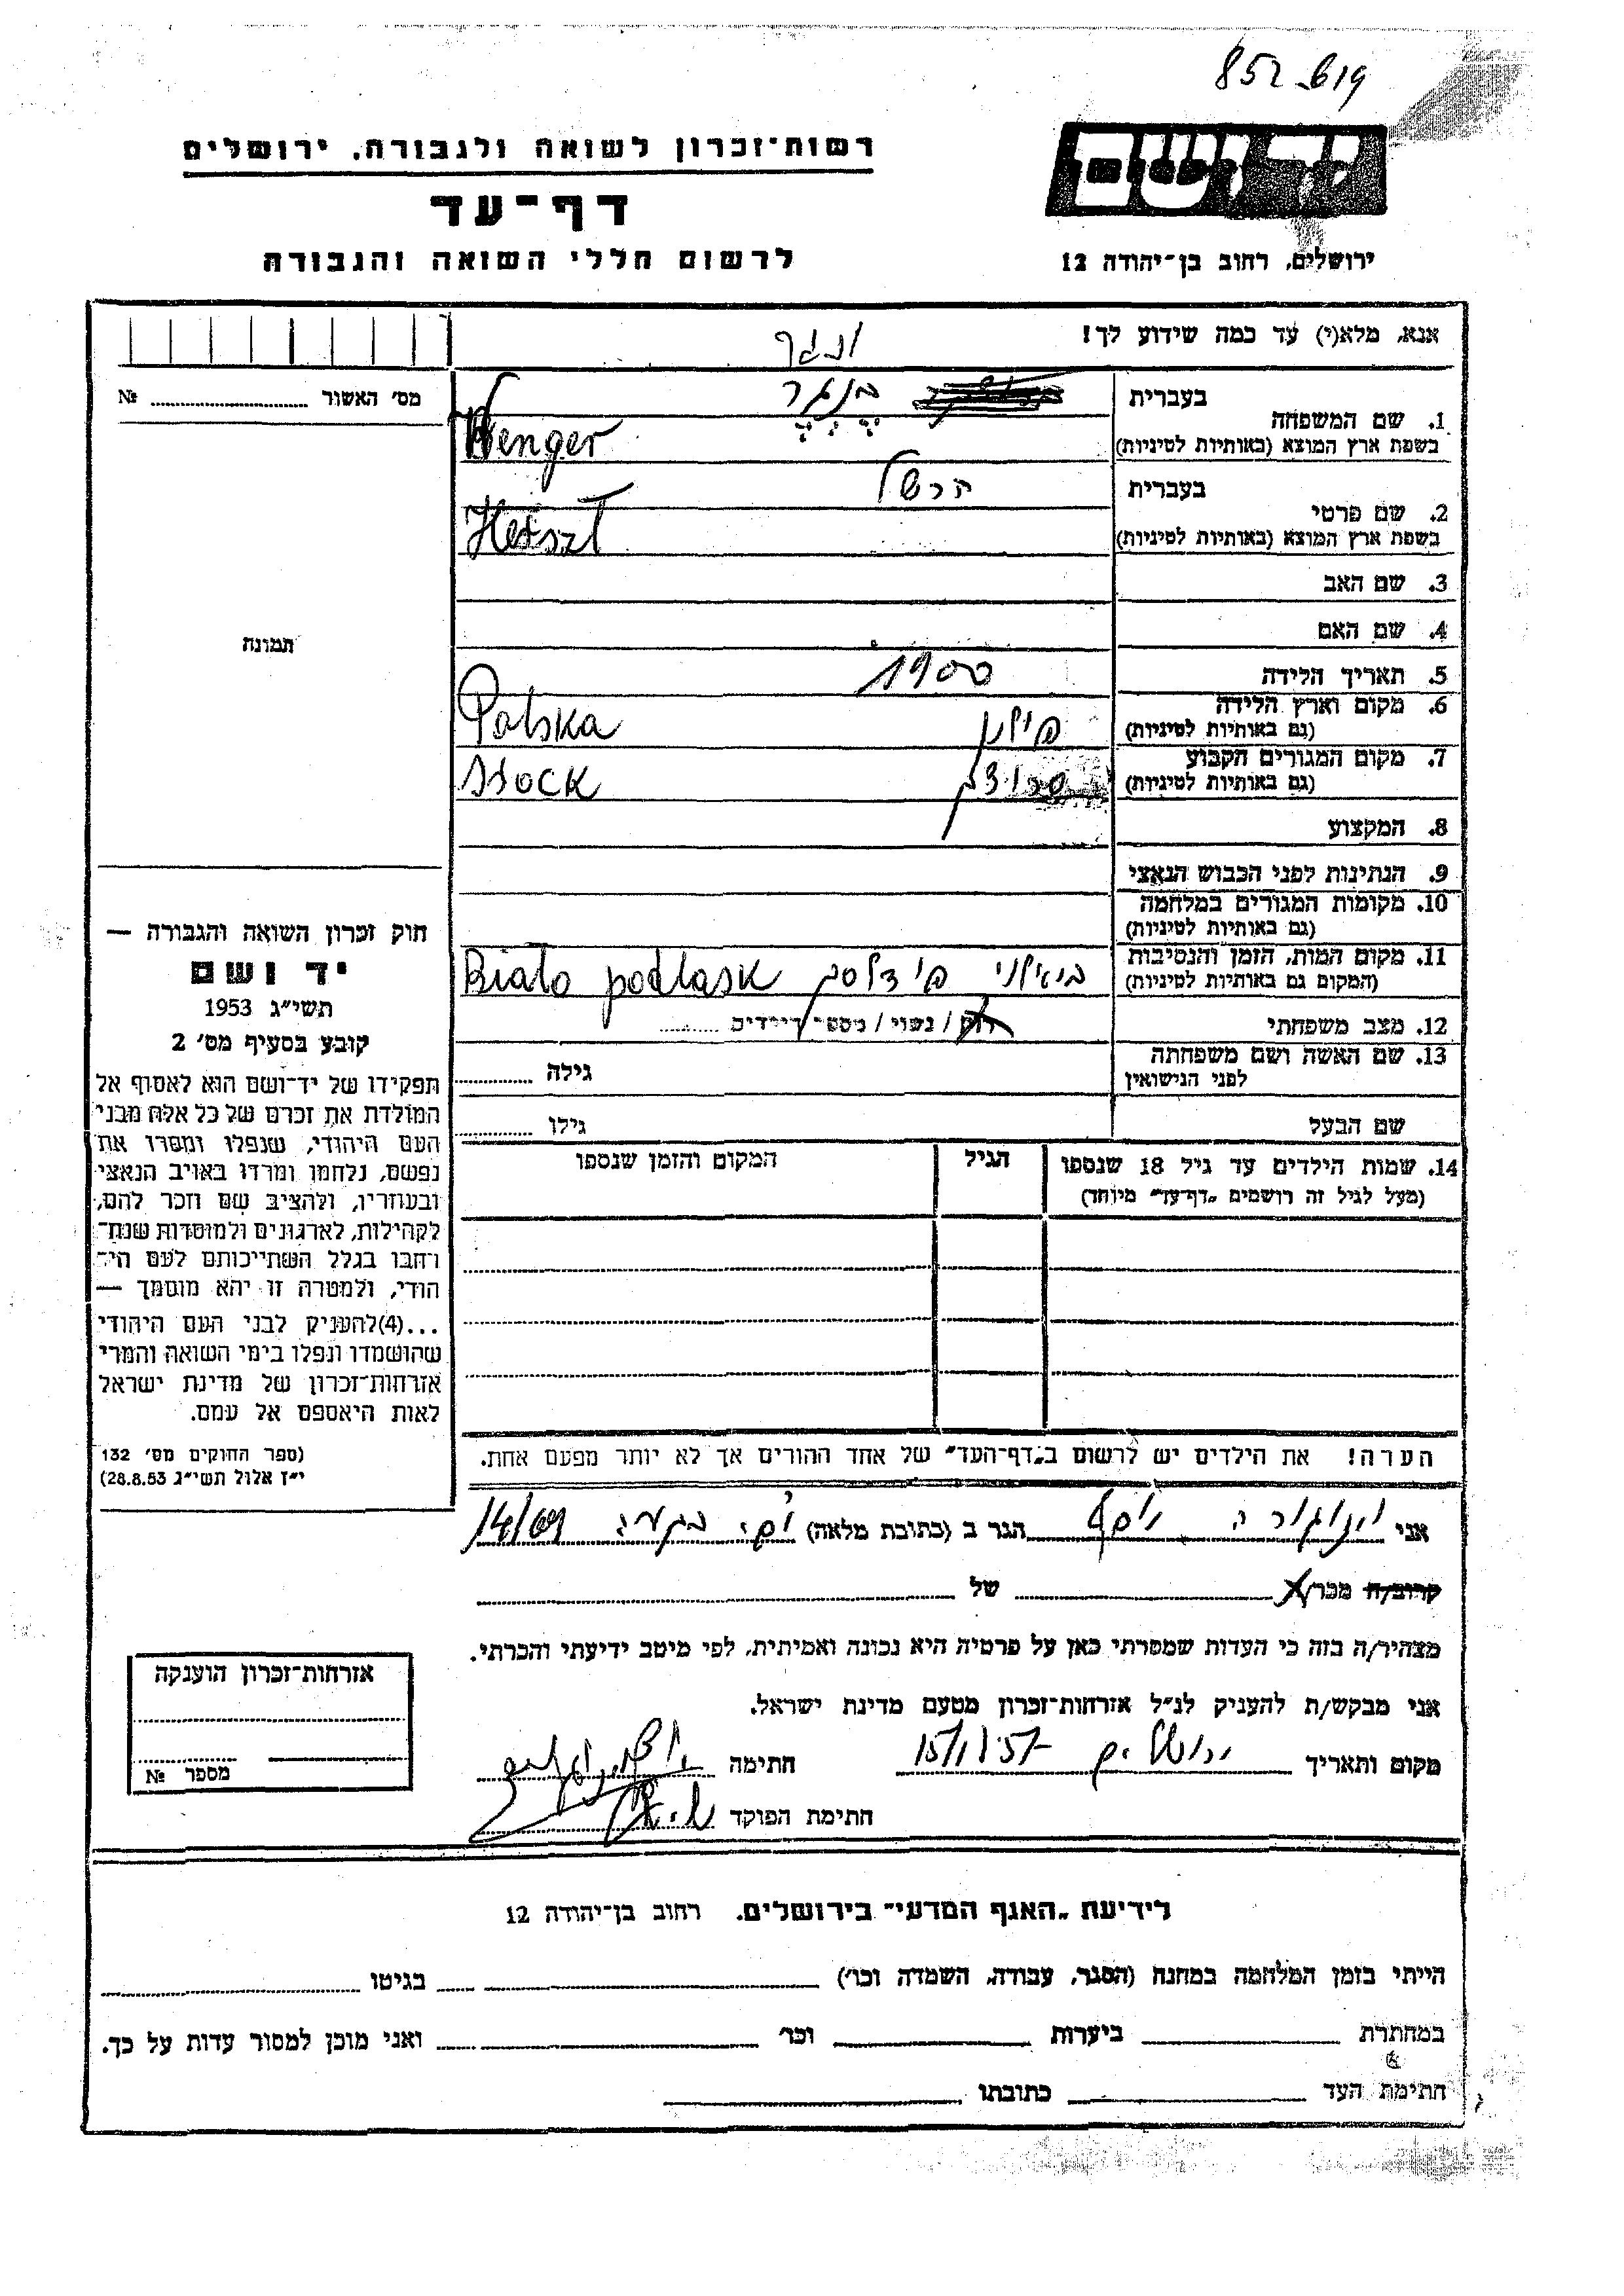 852-619
יד ושם
רשות־זכרון לשואה ולגבורה, ירושלים
דף־עד
לרשום חללי השואה והגבורה
ירושלים, רחוב בן־יהודה 12
אנא, מלא(י) עד כמה שידוע לך!
ונגר
מס׳ האשור № ........
1. שם המשפחה
בעברית
בנגר
בשפת ארץ המוצא (באותיות לטיניות)
Wenger
2. שם פרטי
בעברית
הרשל
בשפת ארץ המוצא (באותיות לטיניות)
Herszl
3. שם האב
4. שם האם
תמונה
5. תאריך הלידה
1900
6. מקום וארץ הלידה
(גם באותיות לטיניות)
פולין Polska
7. מקום המגורים הקבוע
(גם באותיות לטיניות)
8. המקצוע
9. הנתינות לפני הכבוש הנאצי
10. מקומות המגורים במלחמה
(גם באותיות לטיניות)
11. מקום המות, הזמן והנסיבות
(המקום גם באותיות לטיניות)
Biało podlask
12. מצב משפחתי
רווק / נשוי / מספר הילדים ........
13. שם האשה ושם משפחתה
לפני הנישואין
גילה ........
שם הבעל
גילו ........
14. שמות הילדים עד גיל 18 שנספו
(מעל לגיל זה רושמים „דף־עד״ מיוחד)
הגיל
המקום והזמן שנספו
הערה! את הילדים יש לרשום ב„דף־העד״ של אחד ההורים אך לא יותר מפעם אחת.
חוק זכרון השואה והגבורה —
יד ושם
תשי״ג 1953
קובע בסעיף מס׳ 2
תפקידו של יד־ושם הוא לאסוף אל
המולדת את זכרם של כל אלה מבני
העם היהודי, שנפלו ומסרו את
נפשם, נלחמו ומרדו באויב הנאצי
ובעוזריו, ולהציב שם וזכר להם,
לקהילות, לארגונים ולמוסדות שנח־
רחבו בגלל השתייכותם לעם הי־
הודי, ולמטרה זו יהא מוסמך —
...(4)להעניק לבני העם היהודי
שהושמדו ונפלו בימי השואה והמרי
אזרחות־זכרון של מדינת ישראל
לאות היאספם אל עמם.
(ספר החוקים מס׳ 132
י״ז אלול תשי״ג 28.8.53)
אני יוסף הגר ב (כתובת מלאה) 14/69
קרוב/ה מכר/ה של
מצהיר/ה בזה כי העדות שמסרתי כאן על פרטיה היא נכונה ואמיתית, לפי מיטב ידיעתי והכרתי.
אני מבקש/ת להעניק לנ״ל אזרחות־זכרון מטעם מדינת ישראל.
מקום ותאריך ירושלים חתימה
חתימת הפוקד
אזרחות־זכרון הוענקה
מספר №
לידיעת „האגף המדעי״ בירושלים. רחוב בן־יהודה 12
הייתי בזמן המלחמה במחנה (הסגר, עבודה, השמדה וכו׳) בגיטו
במחתרת ביערות וכו׳ ואני מוכן למסור עדות על כך.
חתימת העד כתובתו